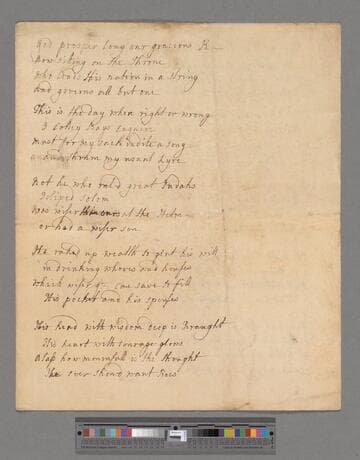 God prosper long our gracious K–
Now sitting on the Throne
Who leads this nation in a string
And governs all but one
This is the day when right or wrong
I Colley Bays Esquire
Must for my sack indite a song
And thrum my venal Lyre
Not he who ruld great Judahs
was wiser at the
or had a wiser son
He rakes up wealth to glut his will
in drinking whores and houses
Which wiser G– can save to fill
His pocket and his spouses
His head with wisdom deep is fraught
His heart with courage glows
Alass how mournfull is the thought
He ever shoud want foes